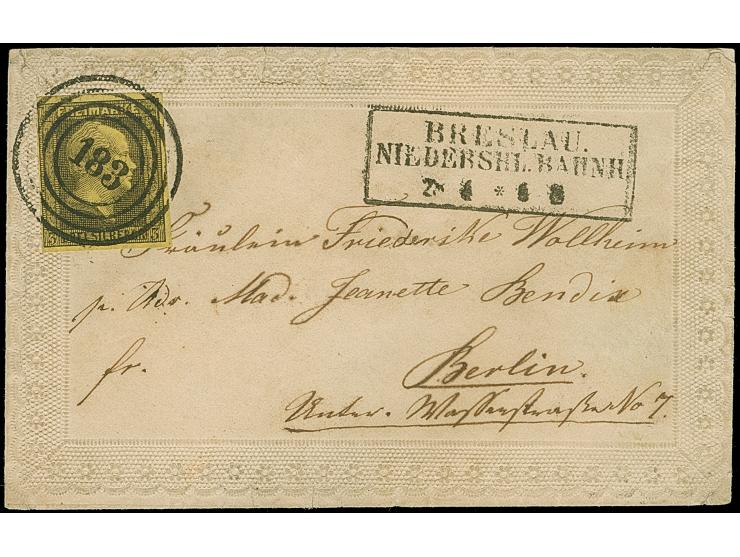 FREIMARKE
183
3 SILBERGR. 3
BRESLAU.
NIEDERSHL. BAHNH
Fräulein Friederike Wollheim
p. Adr. Mad. Jeanette Bendix
fr.
Berlin.
Unter-Wasserstraße No 7.